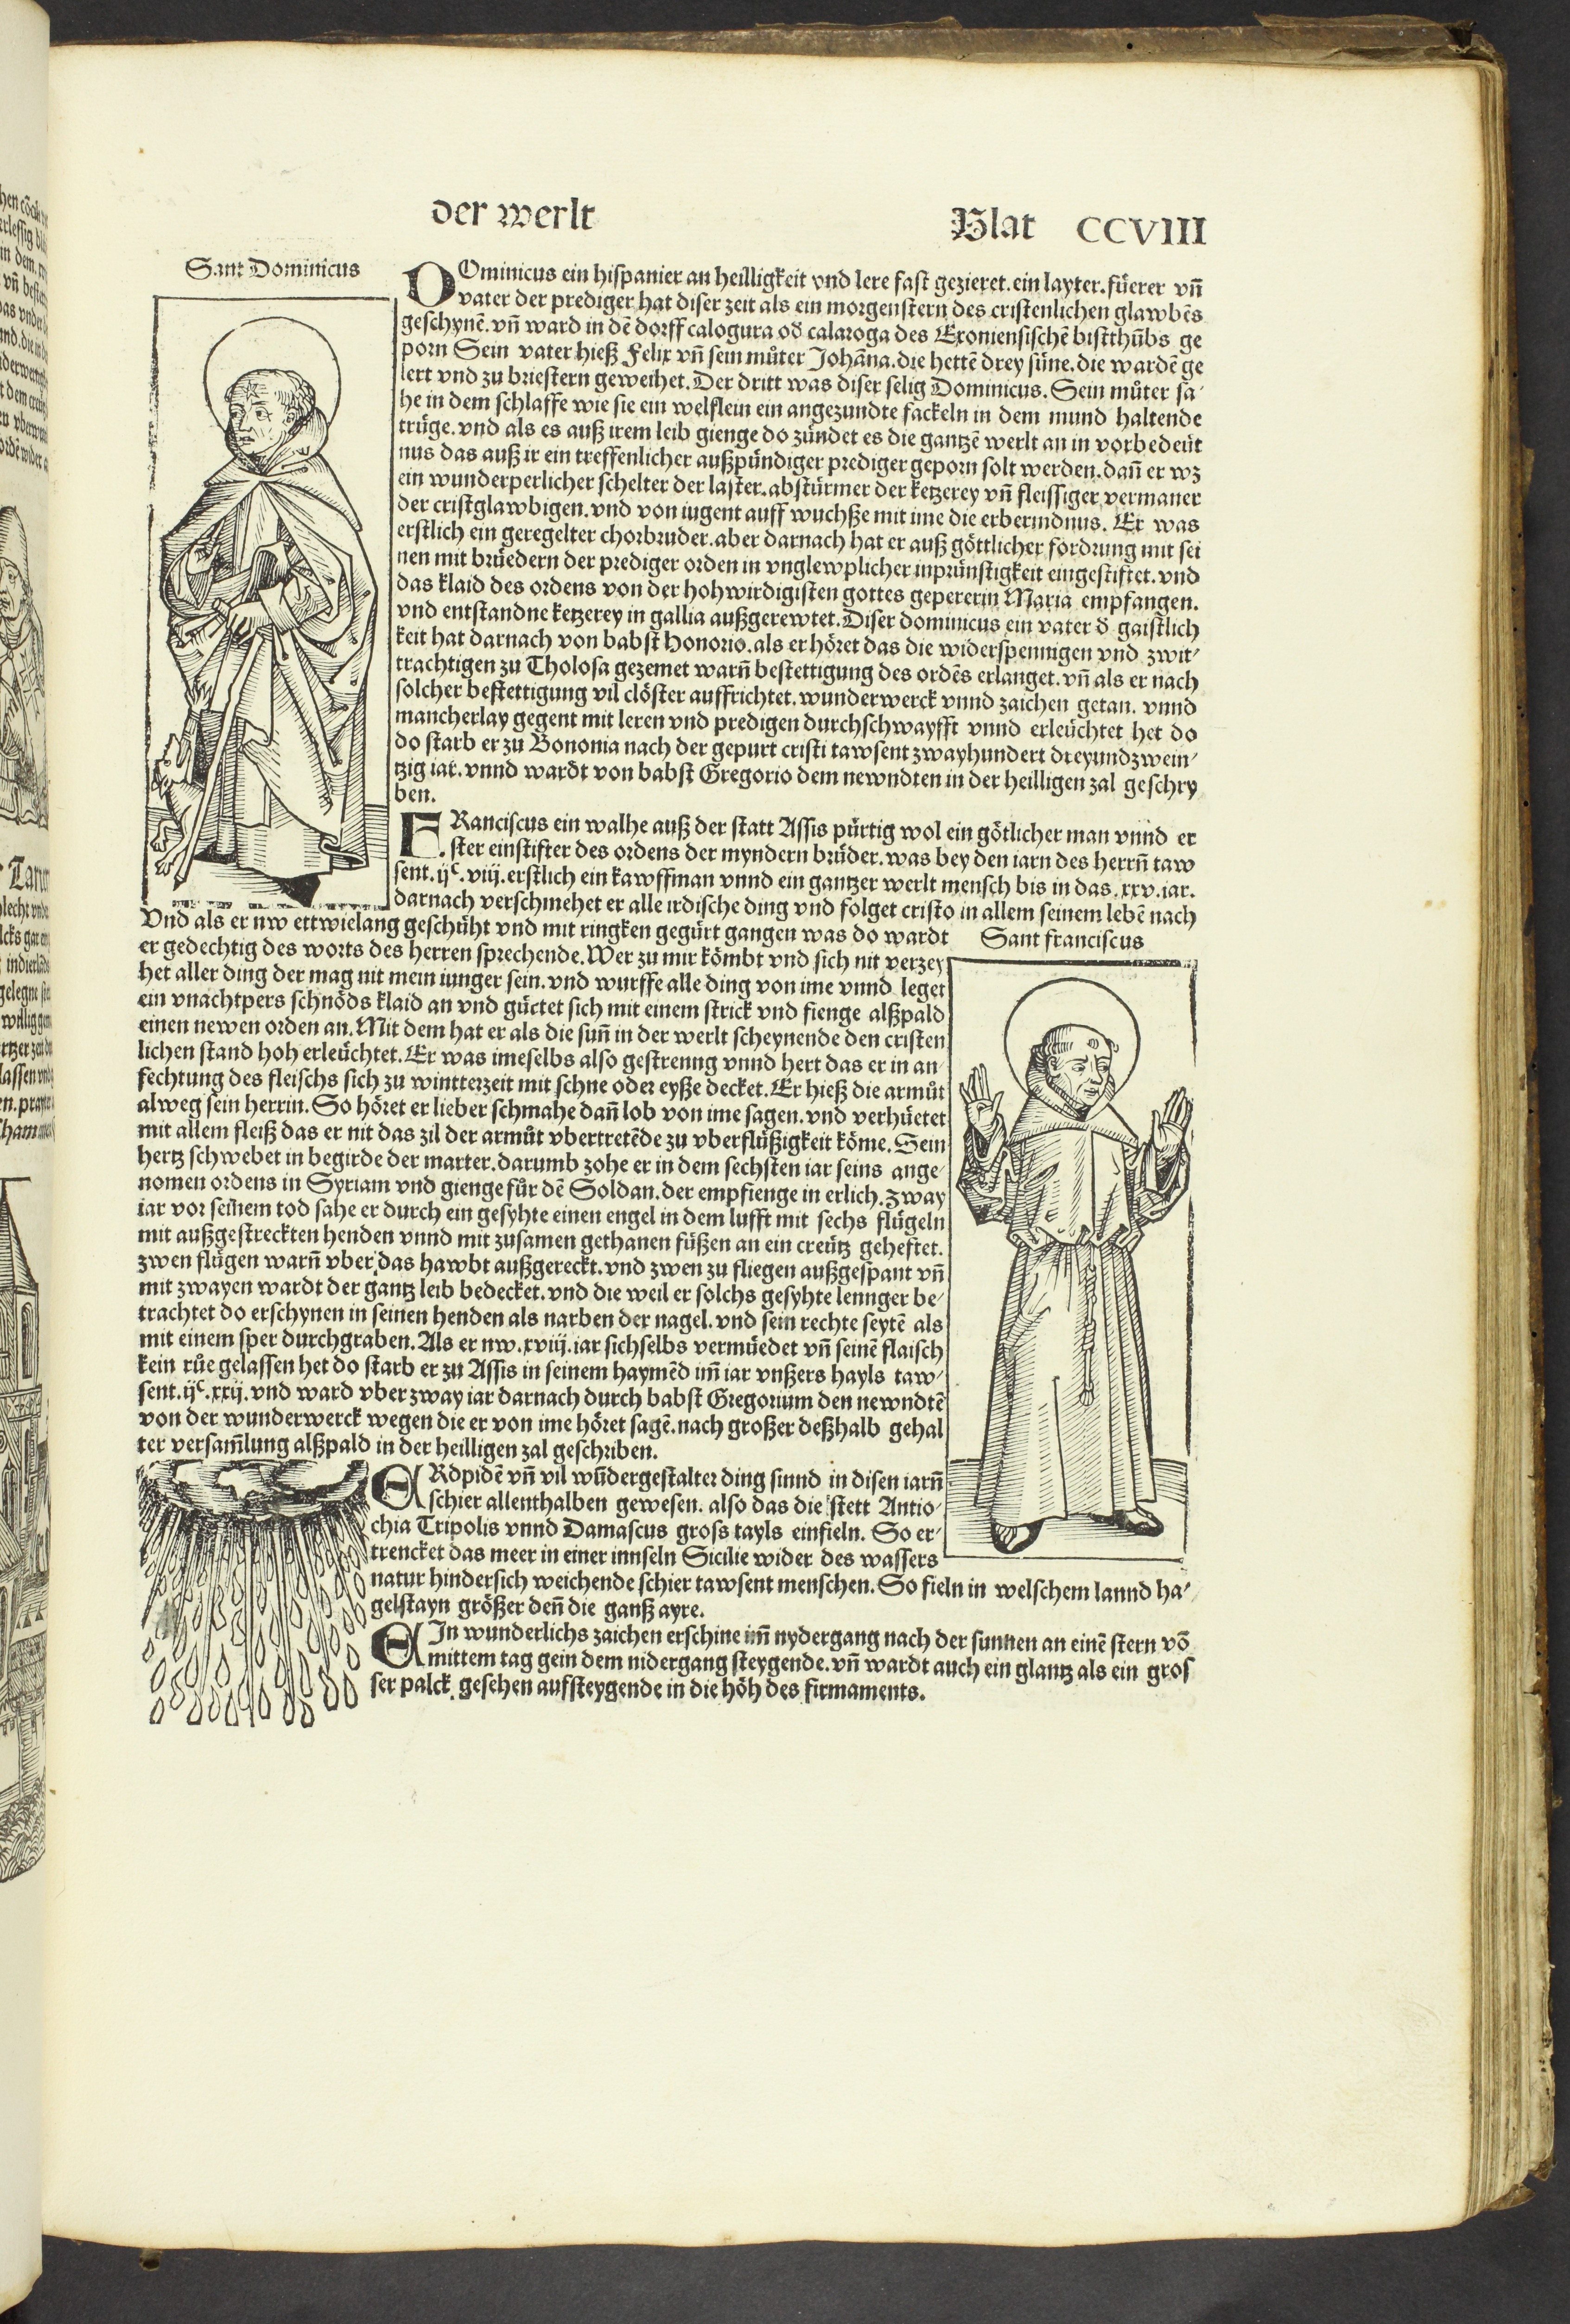 der werlt
Blat CCVIII
Sant Dominicus
DOminicus ein hispanier an heilligkeit vnd lere fast gezieret. ein layter. füerer vñ
vater der prediger hat diser zeit als ein morgenstern des cristenlichen glawbẽs
geschynẽ. vñ ward in dẽ dorff calogura oď calaroga des Exoniensischẽ bistthũbs ge
porn Sein vater hieß Felix vñ sein můter Johãna. die hettẽ drey süne. die wardẽ ge
lert vnd zu briestern geweihet. Der dritt was diser selig Dominicus. Sein můter sa-
he in dem schlaffe wie sie ein welflein ein angezundte fackeln in dem mund haltende
trüge. vnd als es auß irem leib gienge do zündet es die gantzẽ werlt an in vorbedeüt
nus das auß ir ein treffenlicher außpündiger prediger geporn solt werden. dañ er wz
ein wunderperlicher schelter der laster. abstürmer der ketzerey vñ fleissiger vermaner
der cristglawbigen. vnd von iugent auff wuchße mit ime die erbermdnus. Er was
erstlich ein geregelter chorbruder. aber darnach hat er auß göttlicher fordrung mit sei
nen mit brüedern der prediger orden in vnglewplicher inprünstigkeit eingestiftet. vnd
das klaid des ordens von der hohwirdigisten gottes gepererin Maria empfangen.
vnd entstandne ketzerey in gallia außgerewtet. Diser dominicus ein vater ď gaistlich
keit hat darnach von babst Honorio. als er höret das die widerspennigen vnd zwit-
trachtigen zu Tholosa gezemet warñ bestettigung des ordẽs erlanget. vñ als er nach
solcher bestettigung vil clöster auffrichtet. wunderwerck vnnd zaichen getan. vnnd
mancherlay gegent mit leren vnd predigen durchschwayfft vnnd erleüchtet het do
do starb er zu Bononia nach der gepurt cristi tawsent zwayhundert dreyundzwein-
tzig iar. vnnd wardt von babst Gregorio dem newndten in der heilligen zal geschry
ben.
FRanciscus ein walhe auß der statt Assis pürtig wol ein götlicher man vnnd er
ster einstifter des ordens der myndern brüder. was bey den iarn des herrñ taw
sent. ijᶜ. viij. erstlich ein kawffman vnnd ein gantzer werlt mensch bis in das. xxv. iar.
darnach verschmehet er alle irdische ding vnd folget cristo in allem seinem lebẽ nach
Vnd als er nw ettwielang geschüht vnd mit ringken gegürt gangen was do wardt
Sant franciscus
er gedechtig des worts des herren sprechende. Wer zu mir kömbt vnd sich nit verzey
het aller ding der mag nit mein iunger sein. vnd wurffe alle ding von ime vnnd leget
ein vnachtpers schnöds klaid an vnd gürtet sich mit einem strick vnd fienge alßpald
einen newen orden an. Mit dem hat er als die suñ in der werlt scheynende den cristen
lichen stand hoh erleüchtet. Er was imeselbs also gestrenng vnnd hert das er in an-
fechtung des fleischs sich zu wintterzeit mit schne oder eyße decket. Er hieß die armůt
alweg sein herrin. So höret er lieber schmahe dañ lob von ime sagen. vnd verhüetet
mit allem fleiß das er nit das zil der armůt vbertretẽde zu vberflüßigkeit köme. Sein
hertz schwebet in begirde der marter. darumb zohe er in dem sechsten iar seins ange-
nomen ordens in Syriam vnd gienge für dẽ Soldan. der empfienge in erlich. Zway
iar vor seinem tod sahe er durch ein gesyhte einen engel in dem lufft mit sechs flügeln
mit außgestreckten henden vnnd mit zusamen gethanen füßen an ein creütz geheftet.
zwen flügen warñ vber das hawbt außgereckt. vnd zwen zu fliegen außgespant vñ
mit zwayen wardt der gantz leib bedecket. vnd die weil er solchs gesyhte lennger be-
trachtet do erschynen in seinen henden als narben der nagel. vnd sein rechte seytẽ als
mit einem sper durchgraben. Als er nw. xviij. iar sichselbs vermüedet vñ seinẽ flaisch
kein růe gelassen het do starb er zu Assis in seinem haymẽd im̃ iar vnßers hayls taw-
sent. ijᶜ. xxij. vnd ward vber zway iar darnach durch babst Gregorium den newndtẽ
von der wunderwerck wegen die er von ime höret sagẽ. nach großer deßhalb gehal
ter versam̃lung alßpald in der heilligen zal geschriben.
ERdpidẽ vñ vil wũdergestalter ding sinnd in disen iarñ
schier allenthalben gewesen. also das die stett Antio-
chia Tripolis vnnd Damascus gross tayls einfieln. So er-
trencket das meer in einer innseln Sicilie wider des wassers
natur hindersich weichende schier tawsent menschen. So fieln in welschem lannd ha-
gelstayn größer deñ die ganß ayre.
EIn wunderlichs zaichen erschine im̃ nydergang nach der sunnen an einẽ stern võ
mittem tag gein dem nidergang steygende. vñ wardt auch ein glantz als ein gros
ser palck gesehen aufsteygende in die höh des firmaments.